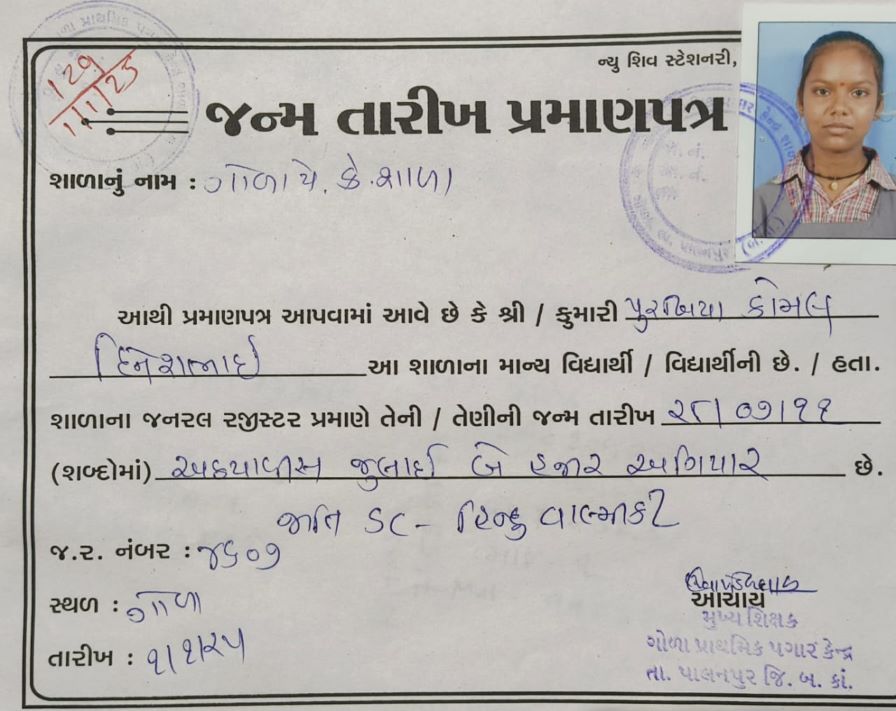 129
1/1/25
ન્યુ શિવ સ્ટેશનરી,
જન્મ તારીખ પ્રમાણપત્ર
શાળાનું નામ : ગોળા પે. કે. શાળા
આથી પ્રમાણપત્ર આપવામાં આવે છે કે શ્રી / કુમારી પુરબિયા કોમલ
દિનેશભાઈ આ શાળાના માન્ય વિદ્યાર્થી / વિદ્યાર્થીની છે. / હતા.
શાળાના જનરલ રજીસ્ટર પ્રમાણે તેની / તેણીની જન્મ તારીખ ૨૮/૦૭/૧૧
(શબ્દોમાં) અઠયાવીસ જુલાઈ બે હજાર અગિયાર છે.
જાતિ SC - હિન્દુ વાલ્મીકી
જ.ર. નંબર : ૪૬૦૭
સ્થળ : ગોળા
તારીખ : ૧/૧/૨૫
આચાર્ય
મુખ્ય શિક્ષક
ગોળા પ્રાથમિક પગાર કેન્દ્ર
તા. પાલનપુર જિ. બ. કાં.